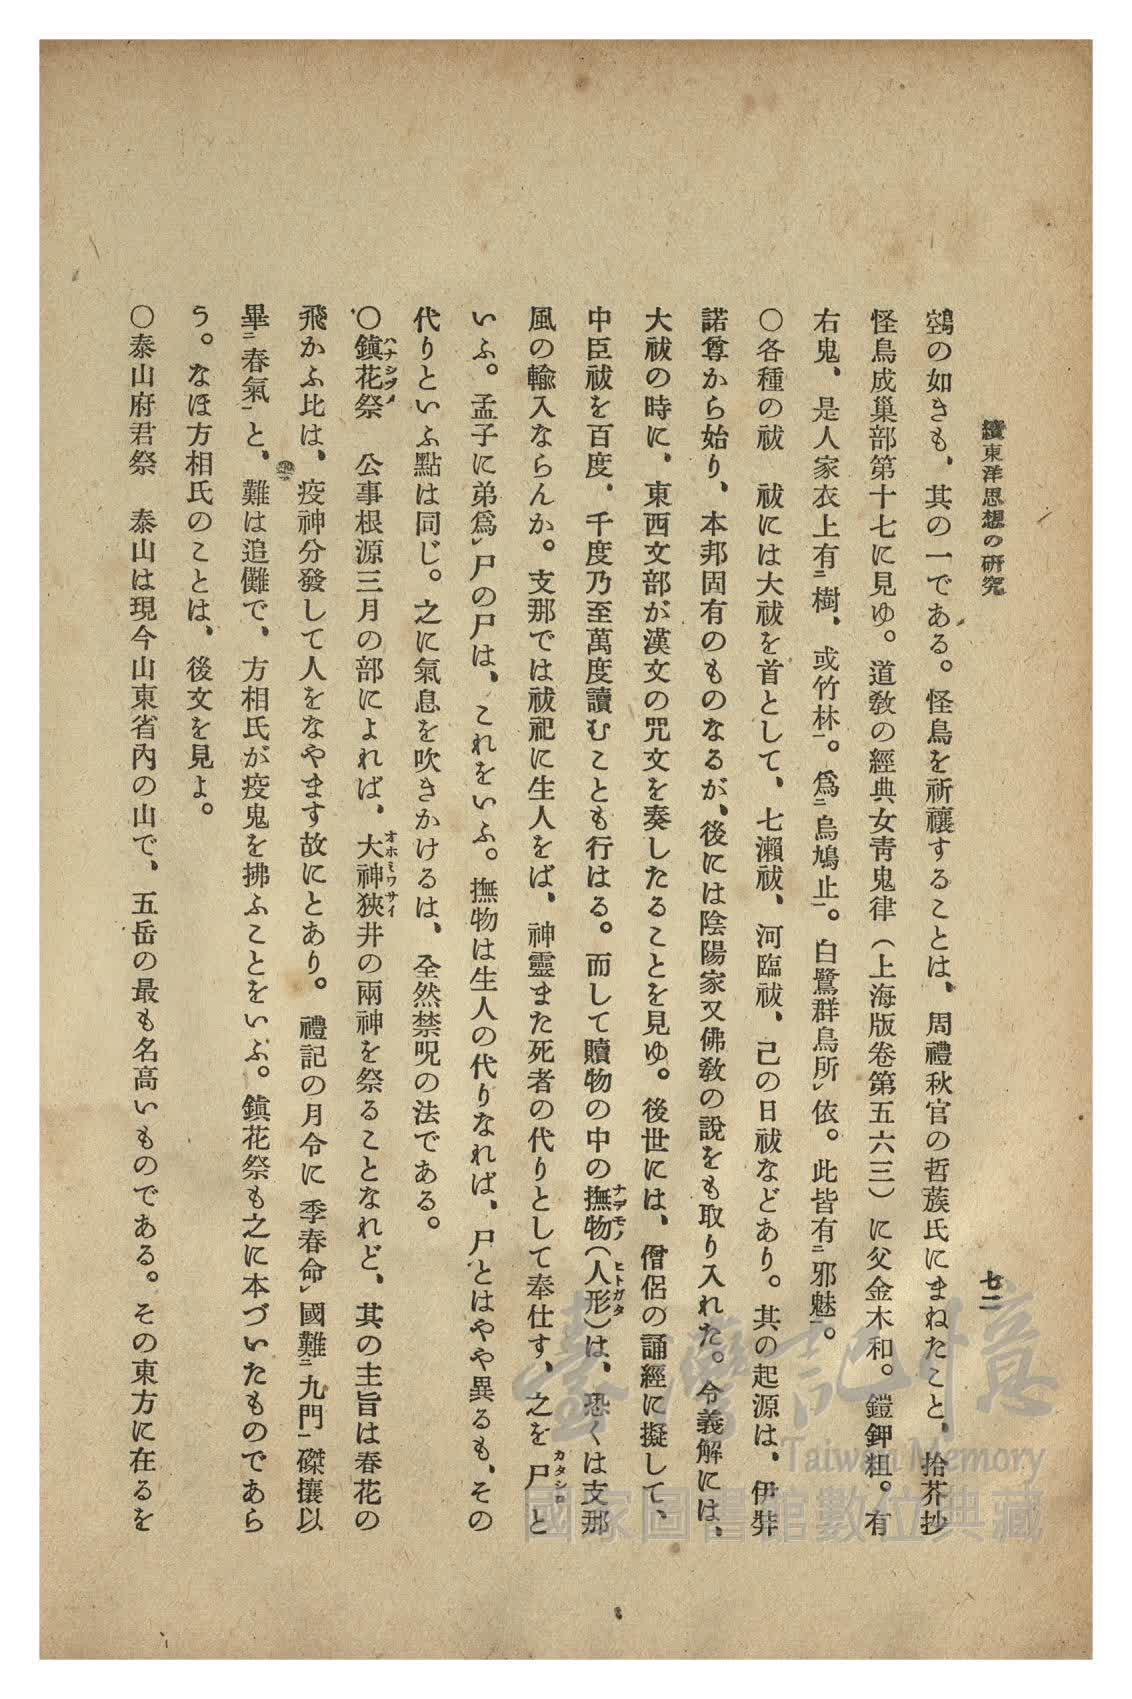 續東洋思想の研究
七二
鵼の如きも、其の一である。怪鳥を祈禳することは、周禮秋官の哲蔟氏にまねたこと、拾芥抄
怪鳥成巢部第十七に見ゆ。道敎の經典女靑鬼律（上海版卷第五六三）に父金木和。鎧鉀粗。有
右鬼、是人家衣上有㆓樹、或竹林㆒。爲㆓烏鳩止㆒。白鷺群鳥所㆑依。此皆有㆓邪魅㆒。
〇各種の祓　祓には大祓を首として、七瀨祓、河臨祓、己の日祓などあり。其の起源は、伊弉
諾尊から始り、本邦固有のものなるが、後には陰陽家又佛敎の說をも取り入れた。令義解には、
大祓の時に、東西文部が漢文の咒文を奏したることを見ゆ。後世には、僧侶の誦經に擬して、
中臣祓を百度、千度乃至萬度讀むことも行はる。而して贖物の中の撫物（人形）は、恐くは支那
ナデモノ　ヒトガタ
風の輸入ならんか。支那では祓祀に生人をば、神靈また死者の代りとして奉仕す、之を尸と
カタシロ
いふ。孟子に弟爲㆑尸の尸は、これをいふ。撫物は生人の代りなれば、尸とはやや異るも、その
代りといふ點は同じ。之に氣息を吹きかけるは、全然禁呪の法である。
〇鎭花祭　公事根源三月の部によれば、大神狹井の兩神を祭ることなれど、其の主旨は春花の
ハナシヅメ　オホミワサイ
飛かふ比は、疫神分發して人をなやます故にとあり。禮記の月令に季春命㆑國難㆓九門㆒磔攘以
畢㆓春氣㆒と、難は追儺で、方相氏が疫鬼を拂ふことをいふ。鎭花祭も之に本づいたものであら
う。なほ方相氏のことは、後文を見よ。
〇泰山府君祭　泰山は現今山東省內の山で、五岳の最も名高いものである。その東方に在るを
臺灣記憶
Taiwan Memory
國家圖書館數位典藏